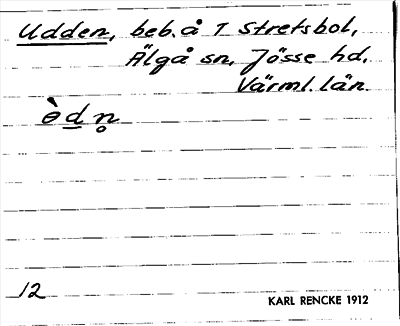 Udden, beb. å 1 Stretsbol,
Älgå sn, Jösse hd,
Värml. län.
ò d n̥
12
KARL RENCKE 1912